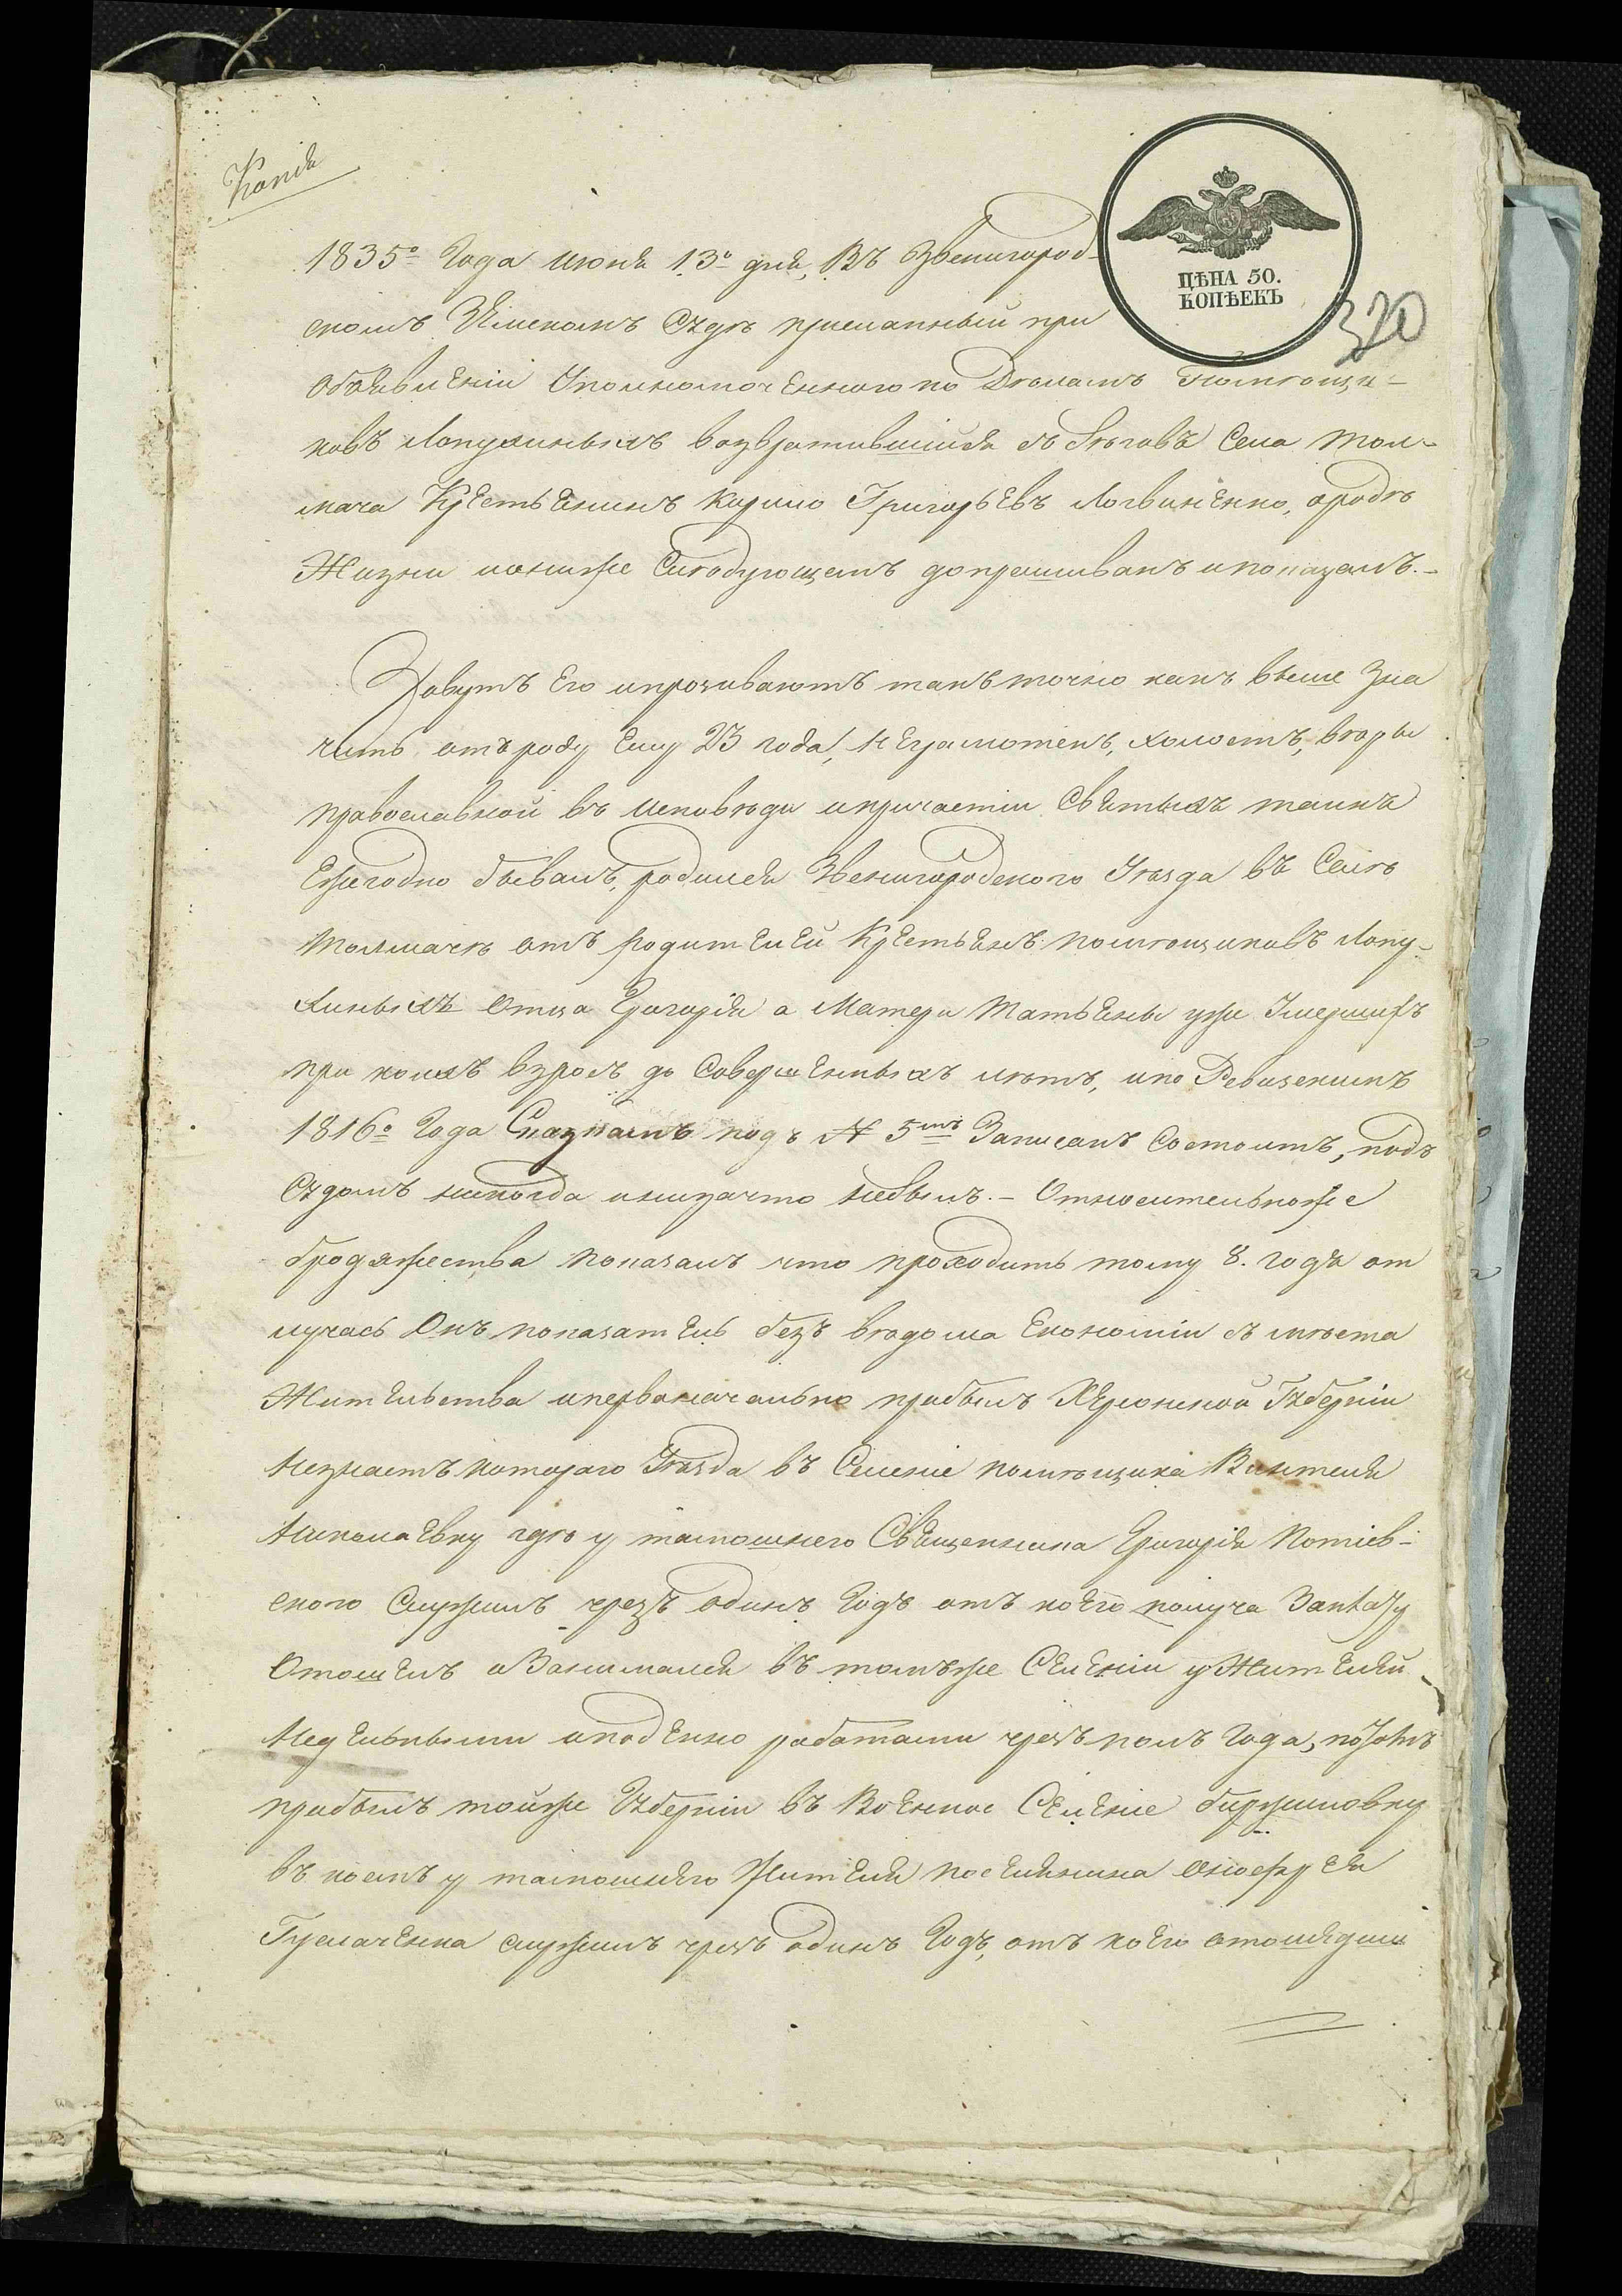 Копія
ЦѢНА 50.
КОПѢЕКЪ
320
1835º Года июня 13º дня, Въ Звенигород-
скомъ Земскомъ Судѣ присланный при
объявленіи Уполномоченного по Дѣламъ Помѣщи-
ковъ Лопухиныхъ возвратившійся съ бѣговъ Села Тол-
мача Крестьянинъ Кирило Григорьевъ Логвиненко, ородѣ
Жизни иониже Слѣдующемъ допрашиванъ ипоказалъ.-
Зовутъ Его ипрозиваютъ такъ точно какъ выше Зна
читъ отъ роду Ему 23 года, неграмотенъ, холостъ, вѣры
православной въ исповѣди ипричастіи Святыхъ таинъ
Ежегодно бывалъ, родился Звенигородского Уѣзда въ Селѣ
Толмачѣ отъ родителей Крестьянъ помѣщиковъ Лопу-
хиныхъ Отца Григорія а Матери Татьяны уже Умершихъ
при коихъ взросъ до Совершенныхъ лѣтъ, ипо Ревизскимъ
1816º Года Сказкамъ подъ № 5мъ Записанъ Состоитъ, подъ
Судомъ никогда инизачто небылъ.- Относительноже
бродяжества показалъ что проходитъ тому 8. годъ от
лучась Онъ показатель безъ вѣдома Економіи съ мѣста
Жительства ипервоначально прибылъ Херсонской Губерніи
Незнаетъ котораго Уѣзда въ Селеніе помѣщика
Николаевку гдѣ у тамошнего Священника Григорія Потіев-
ского Служилъ чрезъ одинъ Годъ отъ коего получа Заплату
Отошелъ иЗанимался въ томъже Селеніи у Жителей
Недельными иподенно работами чрезъ полъ Года, потомъ
прибылъ тойже Губерніи въ Военное Селеніе
въ коемъ у тамошнего Жителя поселянина Онофрея
служилъ чрезъ одинъ Годъ, отъ коего отошедши